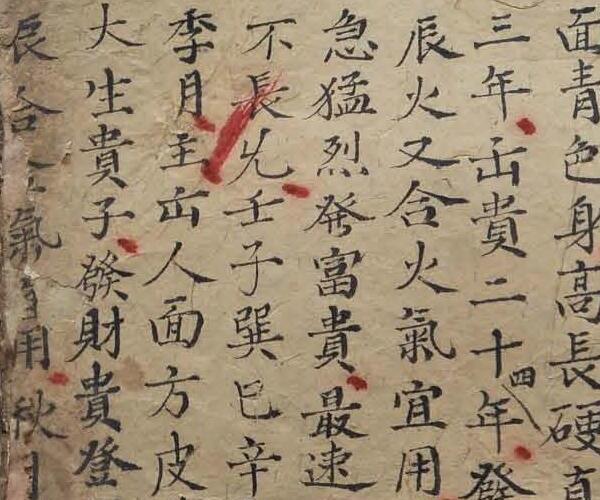 面青色身高長硬直
三年出貴二十四年發
辰火又合火氣宜用
急猛烈發富貴最速
不長尤壬子巽巳辛
季月主出人面方皮
大生貴子發財貴登
辰合金氣宜用秋月